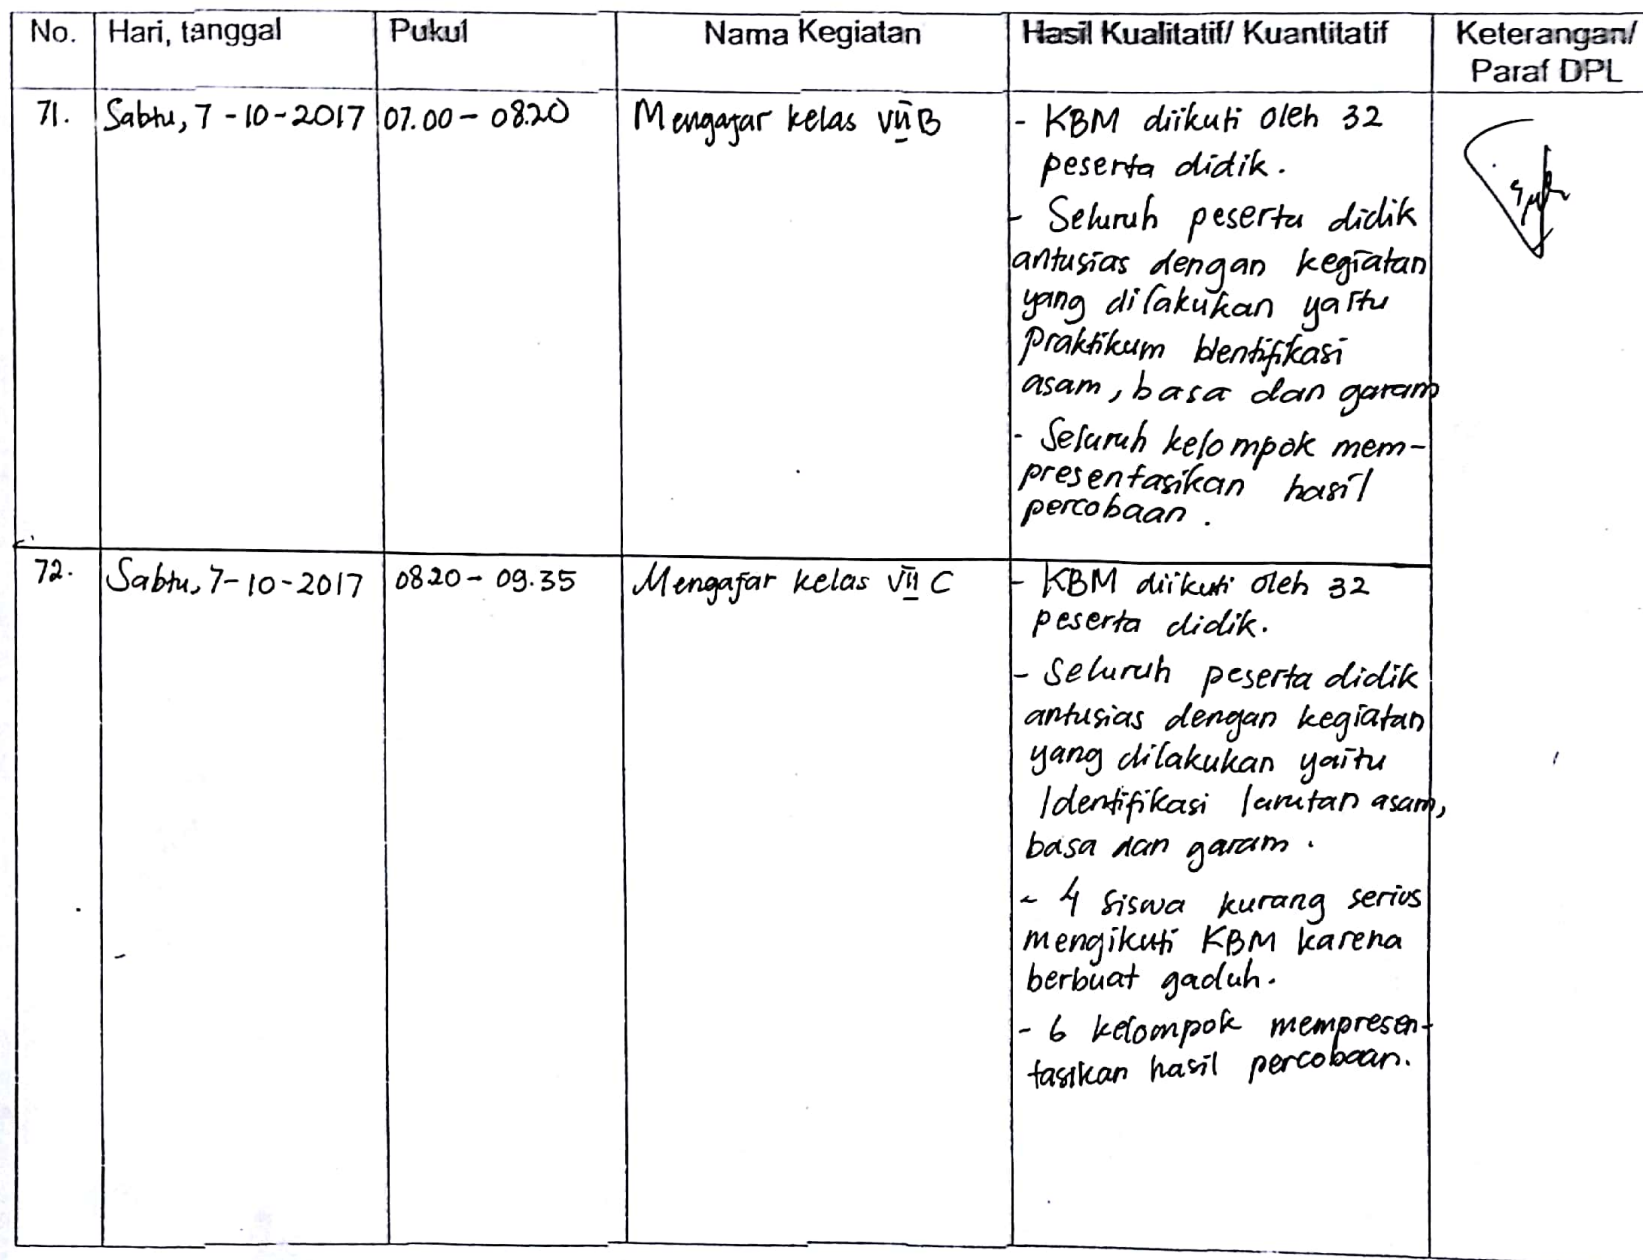 No. Hari, tanggal Pukul Nama Kegiatan Hasil Kualitatif/ Kuantitatif Keterangan/
Paraf DPL
71. Sabtu, 7-10-2017 07.00 - 08.20 Mengajar kelas VII B
- KBM diikuti oleh 32
peserta didik.
- Seluruh peserta didik
antusias dengan kegiatan
yang dilakukan yaitu
praktikum Identifikasi
asam, basa dan garam
- Seluruh kelompok mem-
presentasikan hasil
percobaan.
72. Sabtu, 7-10-2017 08.20 - 09.35 Mengajar kelas VII C
- KBM diikuti oleh 32
peserta didik.
- Seluruh peserta didik
antusias dengan kegiatan
yang dilakukan yaitu
Identifikasi larutan asam,
basa dan garam.
- 4 siswa kurang serius
mengikuti KBM karena
berbuat gaduh.
- 6 kelompok mempresen-
tasikan hasil percobaan.